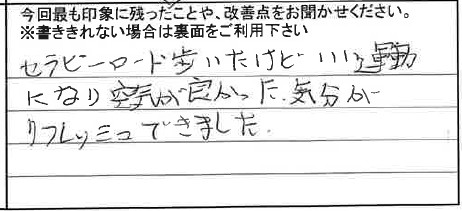 今回最も印象に残ったことや、改善点をお聞かせください。
※書ききれない場合は裏面をご利用下さい
セラピーロード歩いたけどいい運動
になり空気が良かった、気分が
リフレッシュできました.